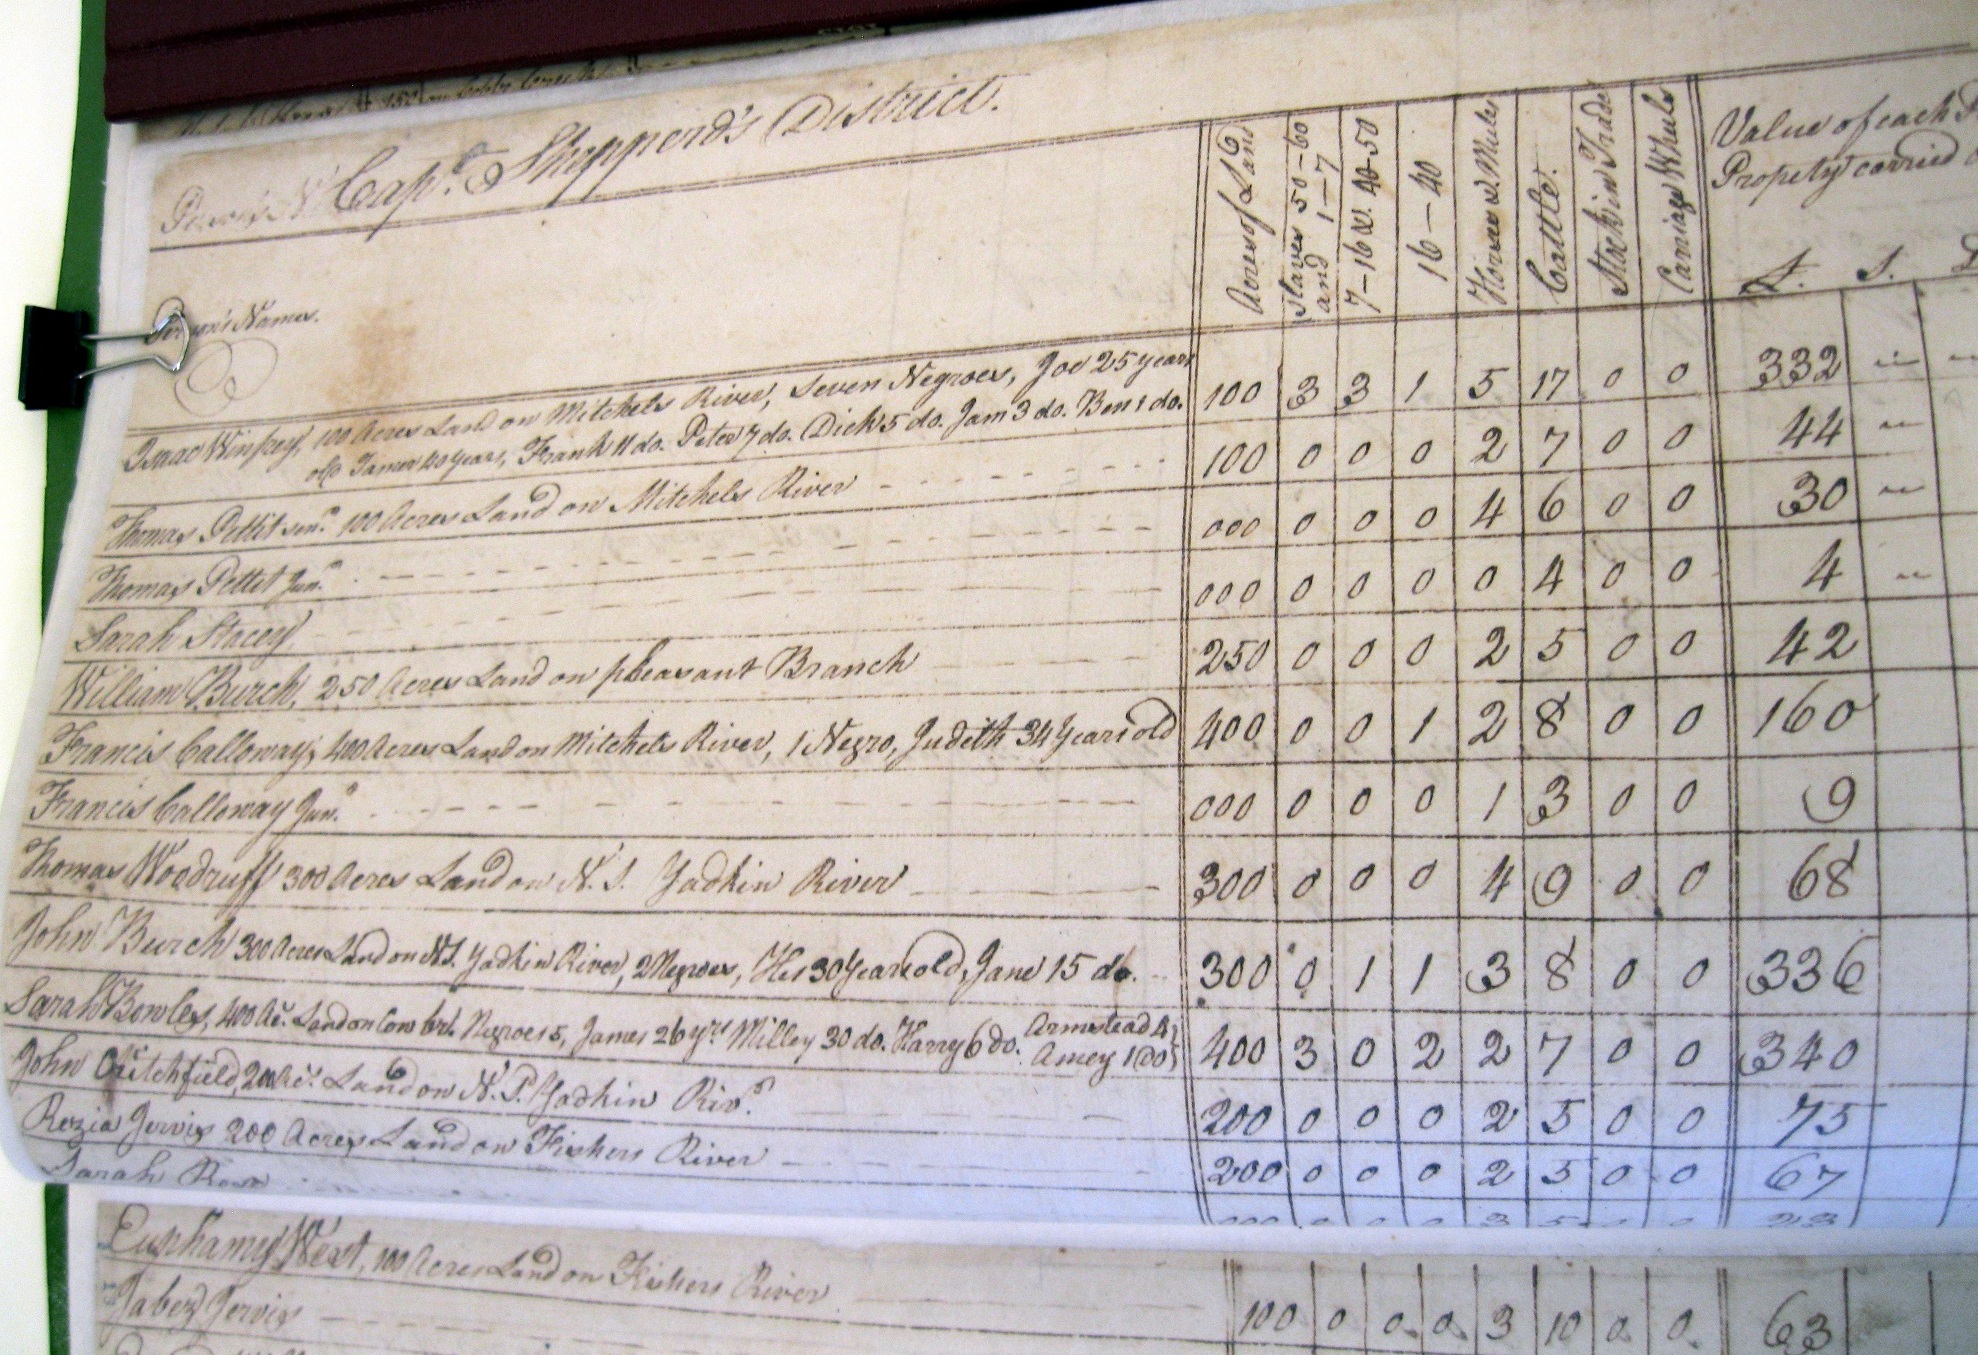 Capt. Shepperd's District.
Person's Names.
Acres of Land
Slaves 50-60 and 1-7
7-16 & 40-50
16-40
Horses & Mules
Cattle.
Stock in Trade
Carriage Wheels
Value of each
Propety carried
£. S. D
Isaac Winfrey, 100 Acres Land on Mitchels River, Seven Negroes, Joe 25 years
old James 40 years, Frank 11 do. Peter 7 do. Dick 5 do. Jam 3 do. Ben 1 do. 100 3 3 1 5 17 0 0 332
Thomas Pettit senr. 100 Acres Land on Mitchels River 100 0 0 0 2 7 0 0 44
Thomas Pettit Junr. 000 0 0 0 4 6 0 0 30
Sarah Stacey 000 0 0 0 0 4 0 0 4
William Burch, 250 Acres Land on pleasant Branch 250 0 0 0 2 5 0 0 42
Francis Calloway, 400 Acres Land on Mitchels River, 1 Negro, Judeth 34 Years old 400 0 0 1 2 8 0 0 160
Francis Calloway Junr. 000 0 0 0 1 3 0 0 9
Thomas Woodruff 300 Acres Land on N. S. Yadkin River 300 0 0 0 4 9 0 0 68
John Burch 300 Acres Land on N.S. Yadkin River, 2 Negroes, 30 Years old, Jane 15 do. 300 0 1 1 3 8 0 0 336
Sarah Bowles, 400 Ac. Land on Cow br. Negroes 5, James 26 yrs Milley 30 do. Harry 6 do. Armstead 4 Amey 1 do 400 3 0 2 2 7 0 0 340
John Critchfield, 200 Ac. Land on N. S. Yadkin Rivr. 200 0 0 0 2 5 0 0 75
Rozia Jervis 200 Acres Land on Fishers River 200 0 0 0 2 5 0 0 67
Sarah Rose 000 0 0 0 3 5 0 0 23
Euphamy West, 100 Acres Land on Fishers River 100 0 0. 0. 3 10 0. 0. 63
Jabez Jervis